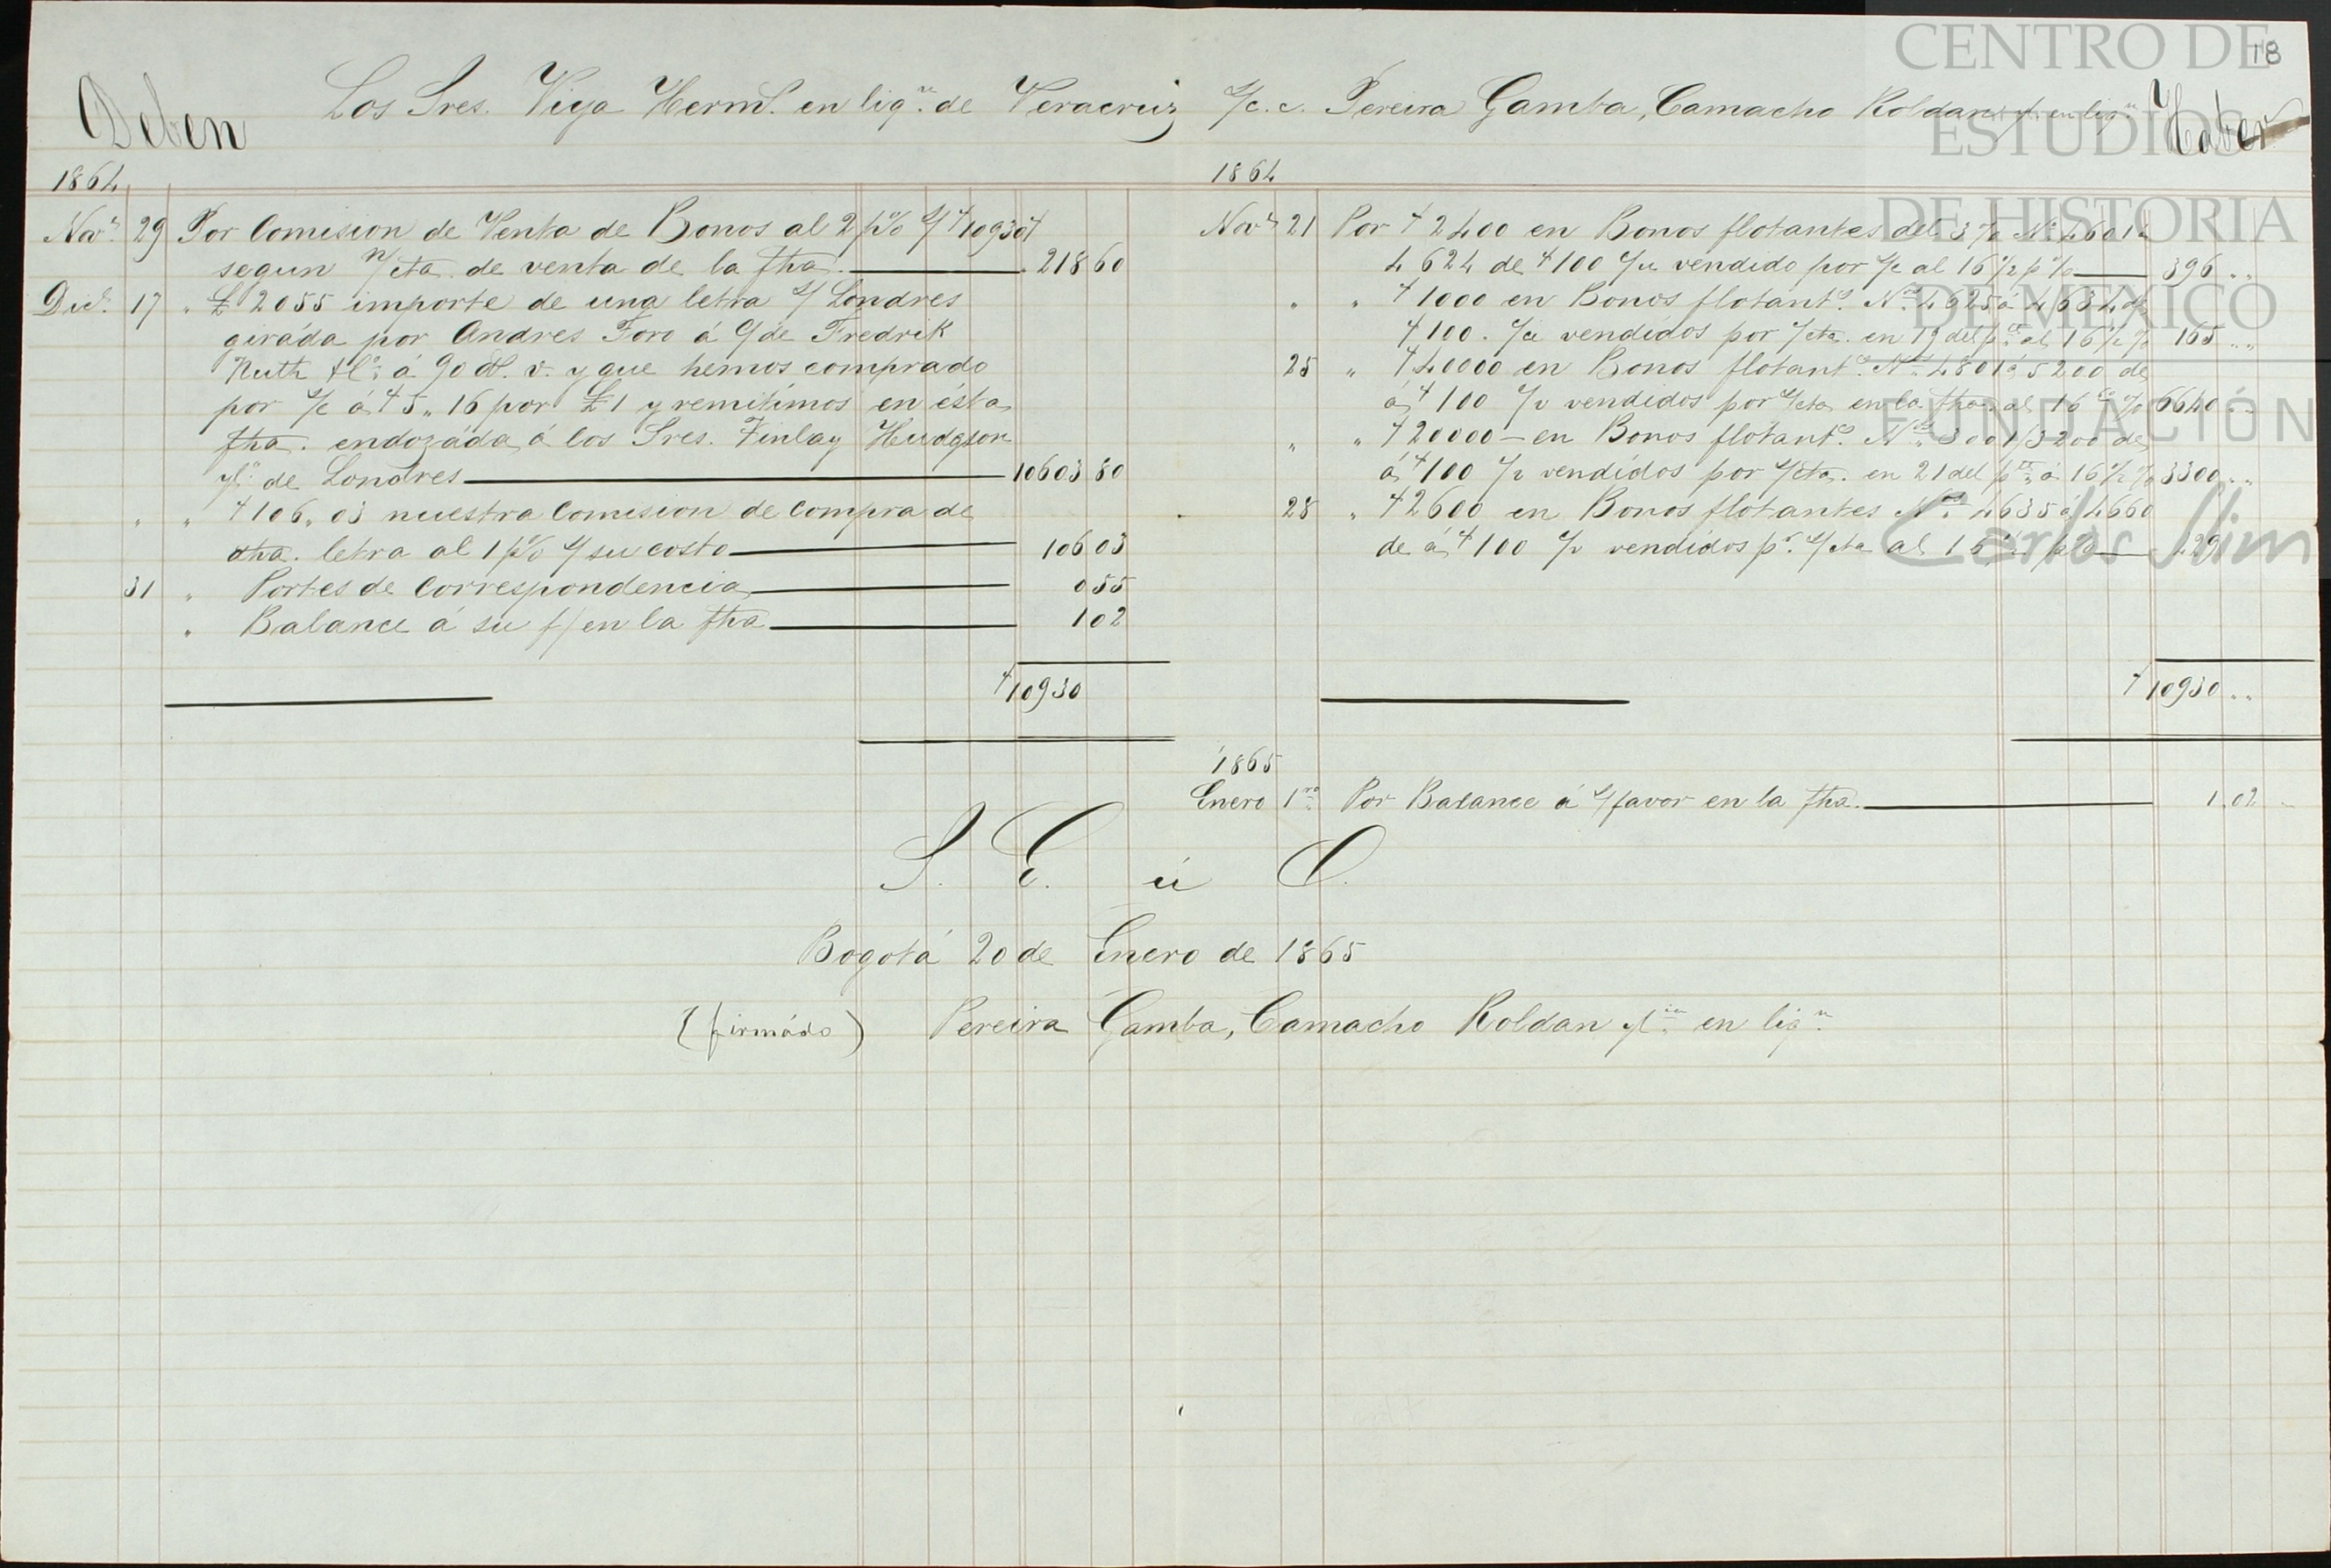 CENTRO DE
ESTUDIOS
DE HISTORIA
DE MÉXICO
FUNDACIÓN
Carlos Slim
18
Deben
Los Sres. Viya Herms. en liqn. de Veracruz s/c. c. Pereira Gamba, Camacho Roldan yCa. en liqn.
Haber
1864
Nove. 29 Por Comision de Venta de Bonos al 2 p% s/ $ 10930 $
segun n/cta. de venta de la fha. 218 60
Dice. 17 " £ 2055 importe de una letra s/ Londres
giráda por Andres Toro á c/ de Fredrik
Huth & Co. á 90 d/. v. y que hemos comprado
por s/c á $ 5,, 16 por £ 1 y remitimos en ésta
fha. endozáda á los Sres. Finlay Hudgson
yCa. de Londres 10603 80
" " $ 106,, 03 nuestra Comision de Compra de
dha. letra al 1 p% s/ su costo 106 03
31 " Portes de Correspondencia 0 55
" Balance á su f/ en la fha 1 02
$ 10930
1864
Nove. 21 Por $ 2400 en Bonos flotantes del 3% Nos. 4601 á
4624 de $ 100 c/u vendido por s/c al 16 1/2 p% 396 ,,
" " $ 1000 en Bonos flotants. Nos. 4625 á 4634 de
$ 100. c/u vendidos por s/cta. en 19 del pte. al 16 1/2 % 165 ,,
25 " $ 40000 en Bonos flotants. Nos. 4801 á 5200 de
á $ 100 c/u vendidos por s/cta en la fha. al 16 60 % 6640 ,,
" " $ 20000 — en Bonos flotants. Nos. 3001/3200 de
á $ 100 c/u vendidos por s/cta. en 21 del pte. á 16 1/2 % 3300 ,,
28 " $ 2600 en Bonos flotantes Nos. 4635 á 4660
de á $ 100 c/u vendidos pr. s/cta al 16 1/2 p% 429
$ 10930 ,,
1865
Enero 1ro. Por Balance á s/favor en la fha. 1. 02
S. E. ú O.
Bogotá 20 de Enero de 1865
(firmádo) Pereira Gamba, Camacho Roldan yCia. en liqn.